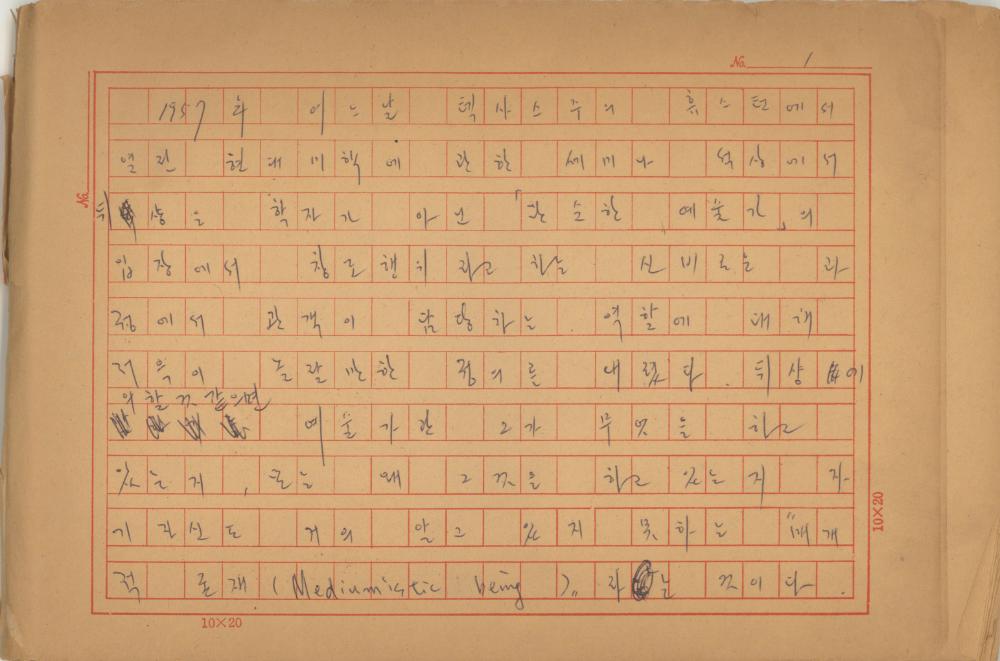 No. 1
1957年 어느날 텍사스주의 휴스턴에서
열린 현대미학에 관한 세미나 석상에서
뒤샹은 학자가 아닌 「순한 예술가」의
입장에서 창조행위라고 하는 신비로운 과
정에서 관객이 담당하는 역할에 대해
저윽이 놀랄만한 정의를 내렸다. 뒤샹에
의할 것 같으면
예술가란 그가 무엇을 하고
있는지, 또는 왜 그것을 하고 있는지 자
기 자신도 거의 알고 있지 못하는 “매개
적 존재(Mediumistic being)”라는 것이다.
No.
10×20
10×20